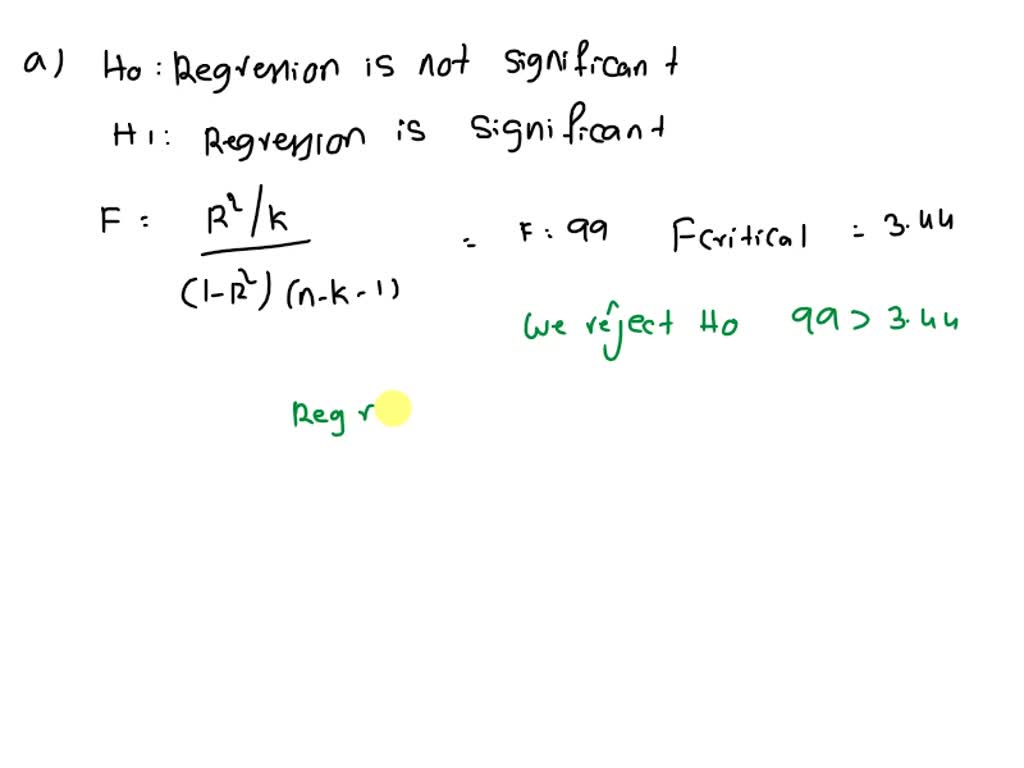 a) Ho : Regression is not significant
H1 : Regression is significant
F = R²/k
(1-R²) (n-k-1)
= F : 99 Fcritical = 3.44
We reject Ho 99 > 3.44
Reg r